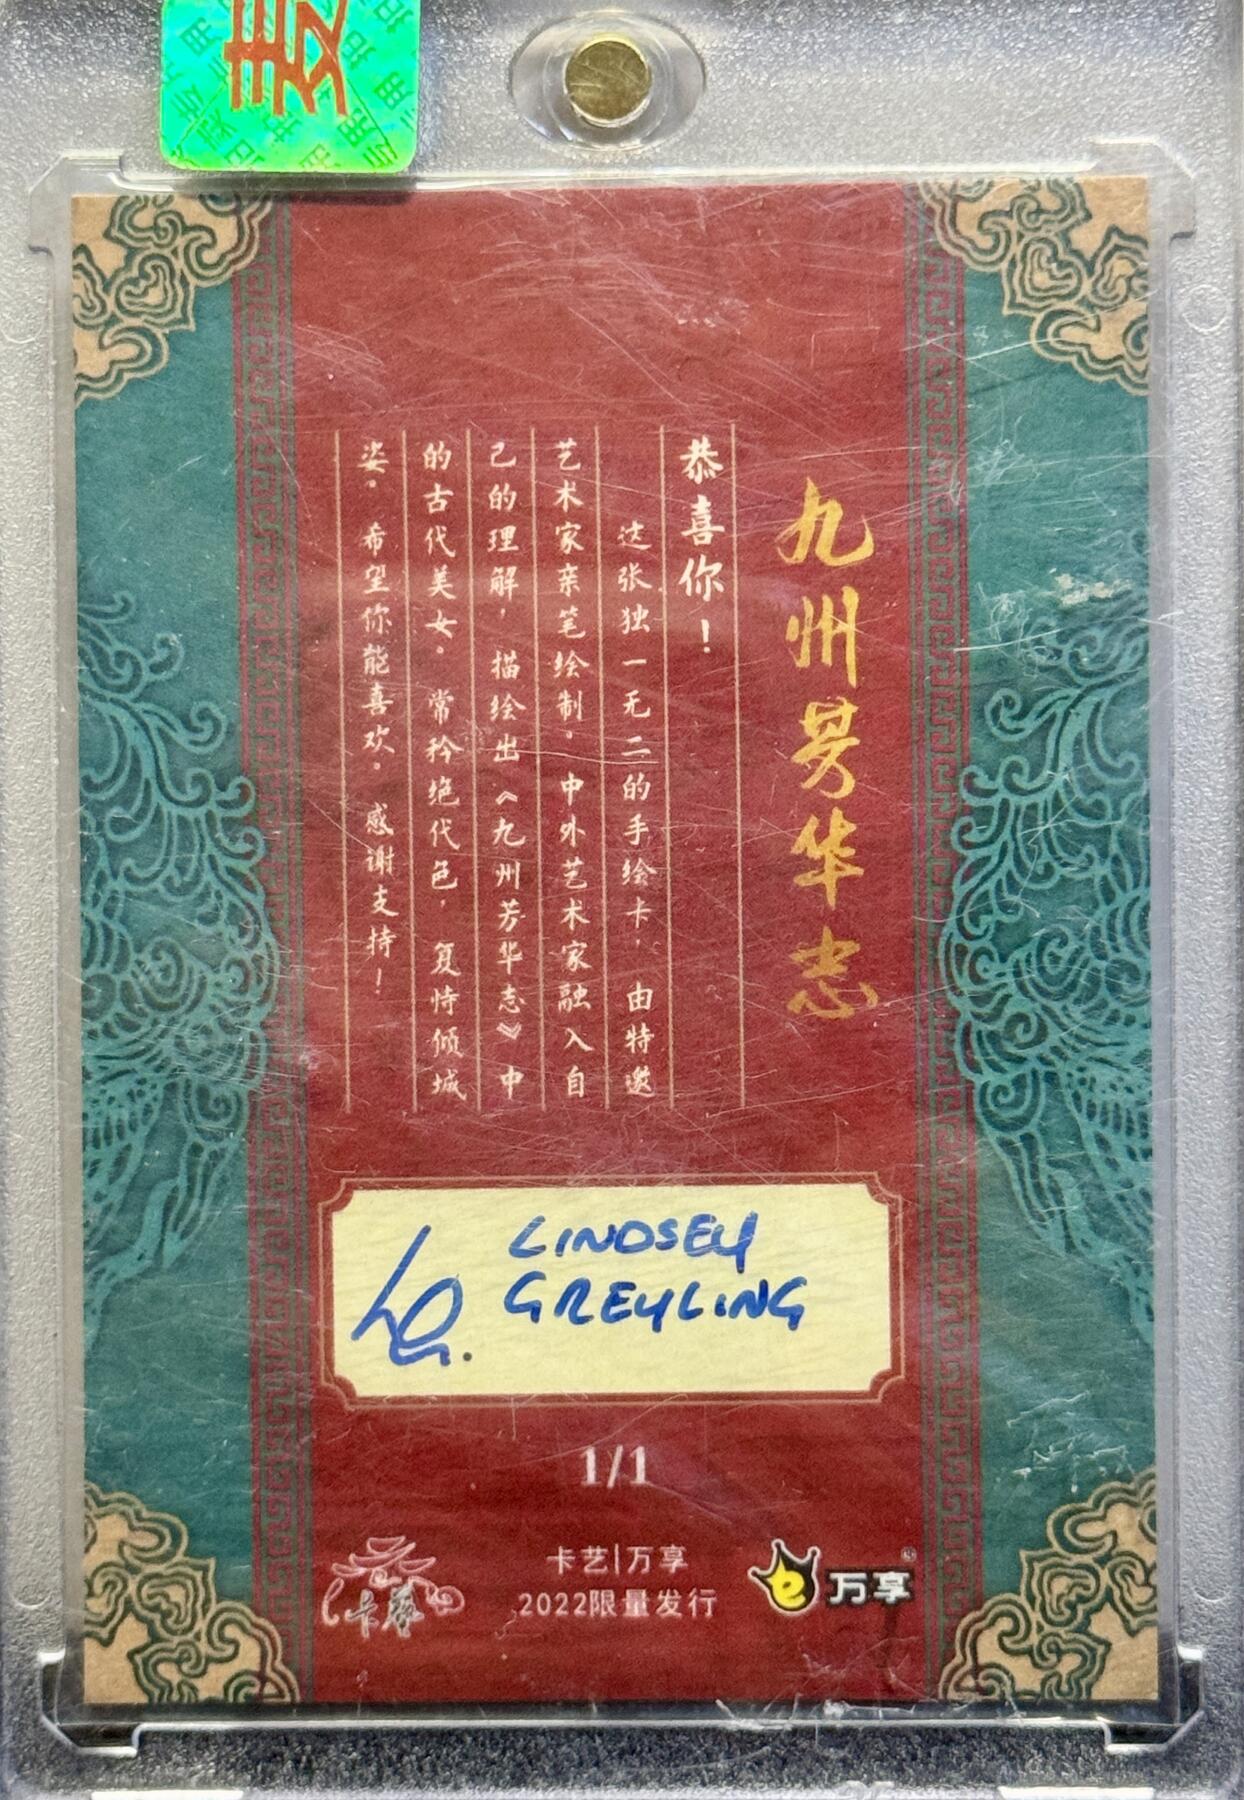 九州芳华志
恭喜你！
这张独一无二的手绘卡，由特邀
艺术家亲笔绘制。中外艺术家融入自
己的理解，描绘出《九州芳华志》中
的古代美女。常矜绝代色，复恃倾城
姿。希望你能喜欢。感谢支持！
LINDSEY
GREYLING
1/1
卡艺|万享
2022限量发行
万享